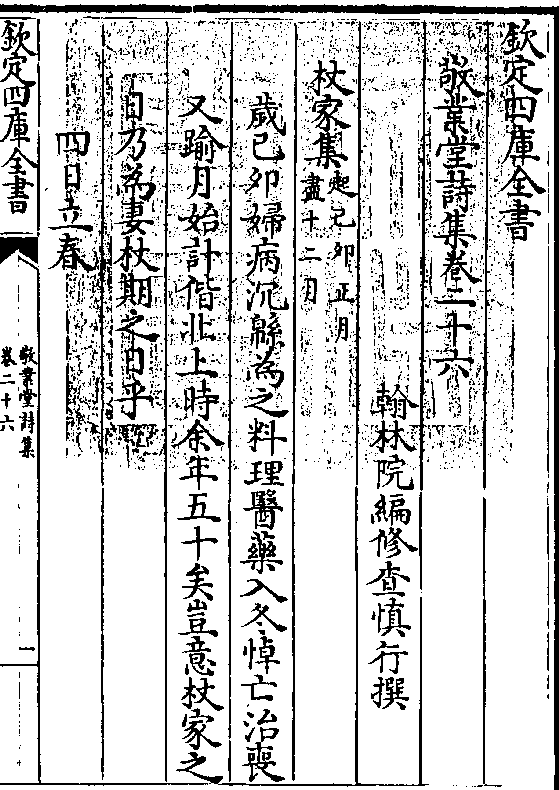 欽定四庫全書
敬業堂詩集卷二十六
翰林院編修查慎行撰
杖家集起己卯正月盡十二月
歲己卯婦病沉緜為之料理醫藥入冬悼亡治喪
又踰月始計偕北上時余年五十矣豈意杖家之
日乃為妻杖期之日乎
四日立春
欽定四庫全書
敬業堂詩集
卷二十六
一